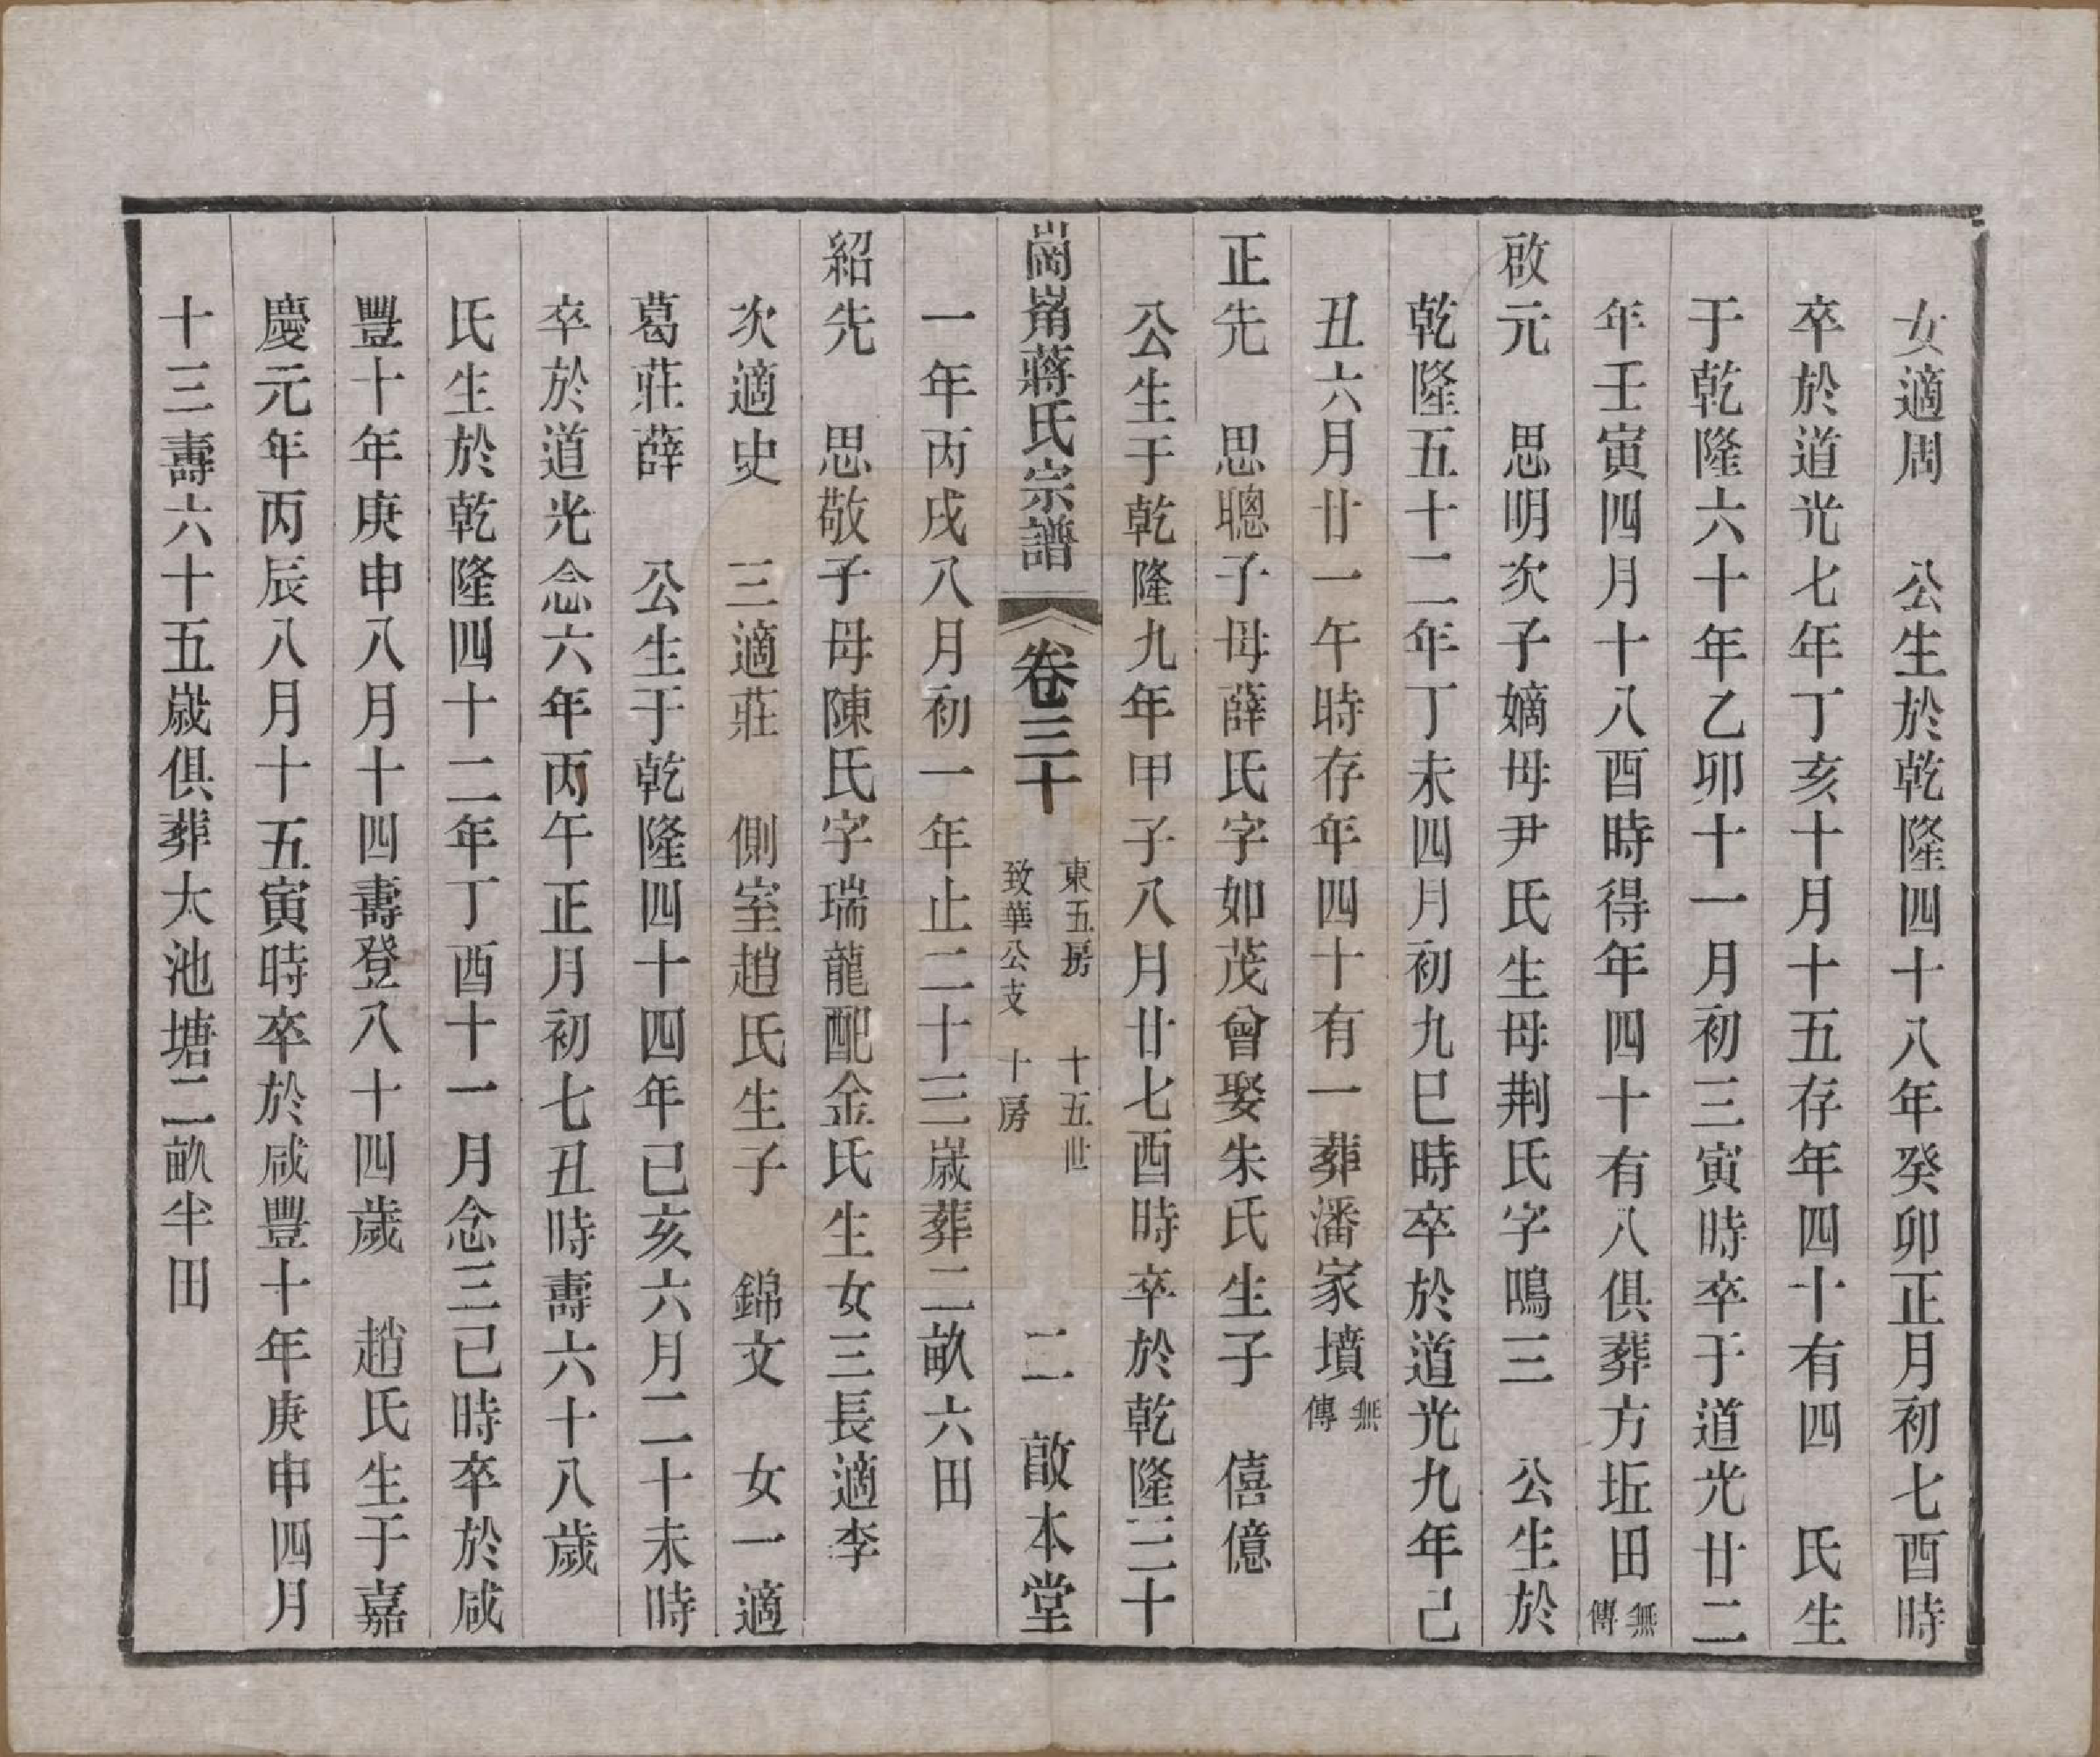 女適周　公生於乾隆四十八年癸卯正月初七酉時
卒於道光七年丁亥十月十五存年四十有四　氏生
于乾隆六十年乙卯十一月初三寅時卒于道光廿二
年壬寅四月十八酉時得年四十有八俱葬方坵田無傳
啟元　思明次子嫡母尹氏生母荆氏字鳴三　公生於
乾隆五十二年丁未四月初九巳時卒於道光九年己
丑六月廿一午時存年四十有一葬潘家墳無傳
正先　思聰子母薛氏字如茂曾娶朱氏生子　僖億
公生于乾隆九年甲子八月廿七酉時卒於乾隆三十
崗嶌蔣氏宗譜　卷三十　東五房　十五世　致華公支　十房　二　啟本堂
一年丙戌八月初一年止二十三嵗葬二畝六田
紹先　思敬子母陳氏字瑞龍配金氏生女三長適李
次適史　三適莊　側室趙氏生子　錦文　女一適
葛莊薛　公生于乾隆四十四年己亥六月二十未時
卒於道光念六年丙午正月初七丑時壽六十八歲
氏生於乾隆四十二年丁酉十一月念三巳時卒於咸
豐十年庚申八月十四壽登八十四歲　趙氏生于嘉
慶元年丙辰八月十五寅時卒於咸豐十年庚申四月
十三壽六十五嵗俱葬大池塘二畝半田